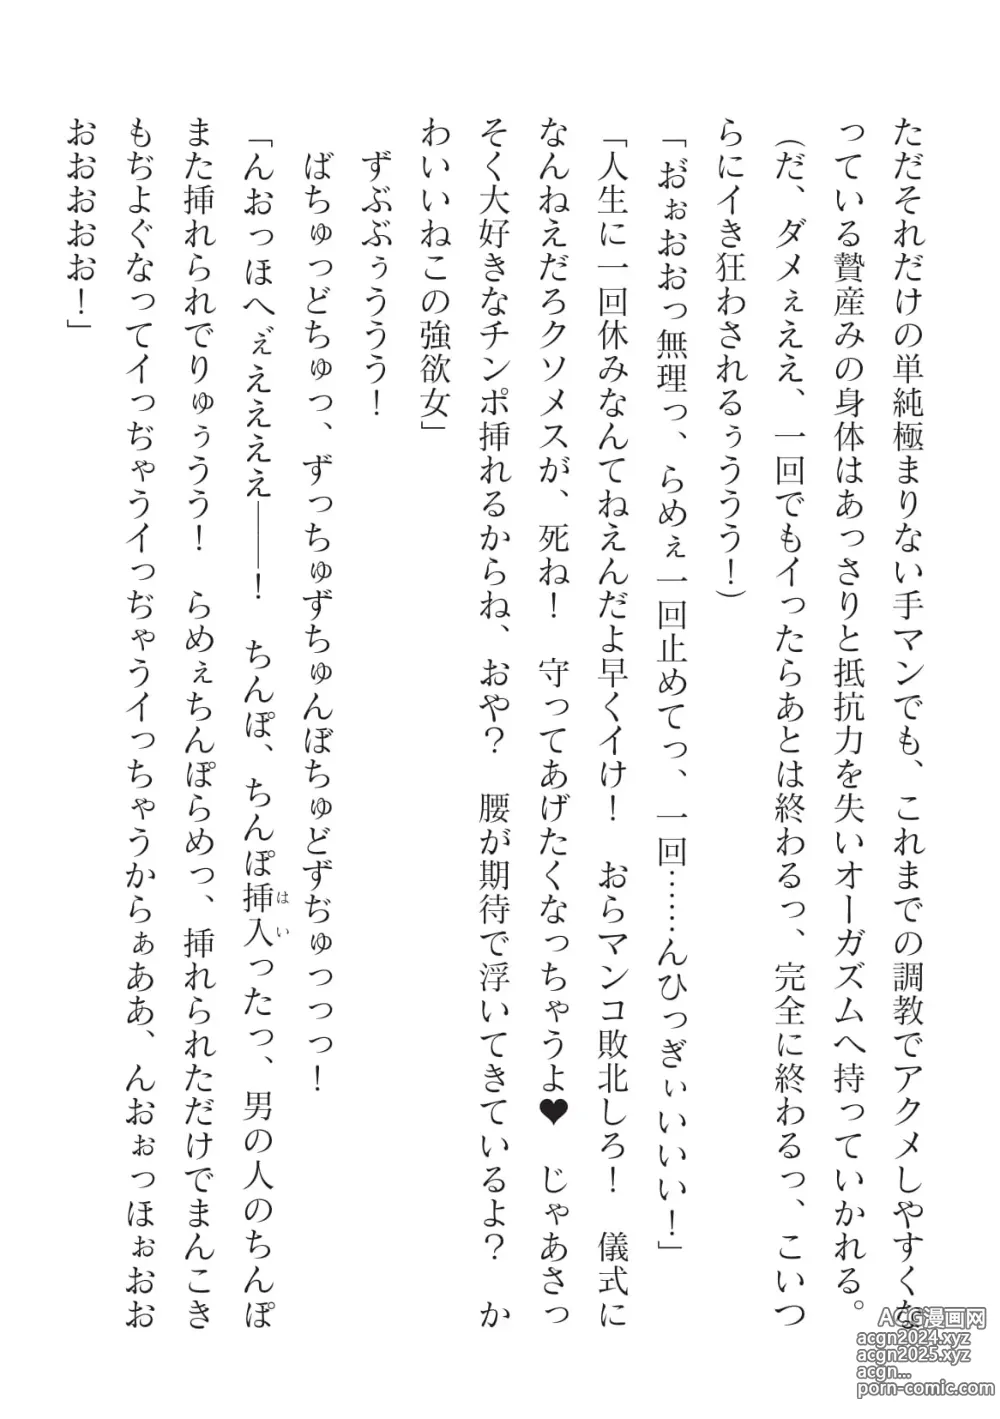 ただそれだけの単純極まりない手マンでも、これまでの調教でアクメしやすくな
っている贄産みの身体はあっさりと抵抗力を失いオーガズムへ持っていかれる。
（だ、ダメぇええ、一回でもイったらあとは終わるっ、完全に終わるっ、こいつ
らにイき狂わされるぅううう！）
「お゙ぉおおっ無理っ、らめぇ一回止めてっ、一回……んひっぎぃいいい！」
「人生に一回休みなんてねえんだよ早くイけ！　おらマンコ敗北しろ！　儀式に
なんねえだろクソメスが、死ね！　守ってあげたくなっちゃうよ♥　じゃあさっ
そく大好きなチンポ挿れるからね、おや？　腰が期待で浮いてきているよ？　か
わいいねこの強欲女」
ずぶぶぅううう！
ばちゅっどちゅっ、ずっちゅずちゅんぼちゅどずぢゅっっっ！
「んおっほへぇ゙ええええ――！　ちんぽ、ちんぽ挿入ったっ、男の人のちんぽ
はい
また挿れられでりゅぅうう！　らめぇちんぽらめっ、挿れられただけでまんこき
もぢよぐなってイっぢゃうイっぢゃうイっちゃうからぁああ、んおぉっほぉおお
おおおおお！」
ACG漫画网
acgn2024.xyz
acgn2025.xyz
acgn...
porn-comic.com